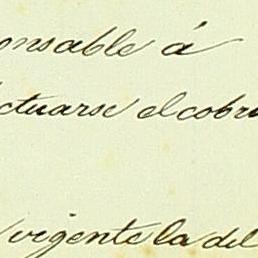 onsable á
ctuarse el cobr
vigente la del